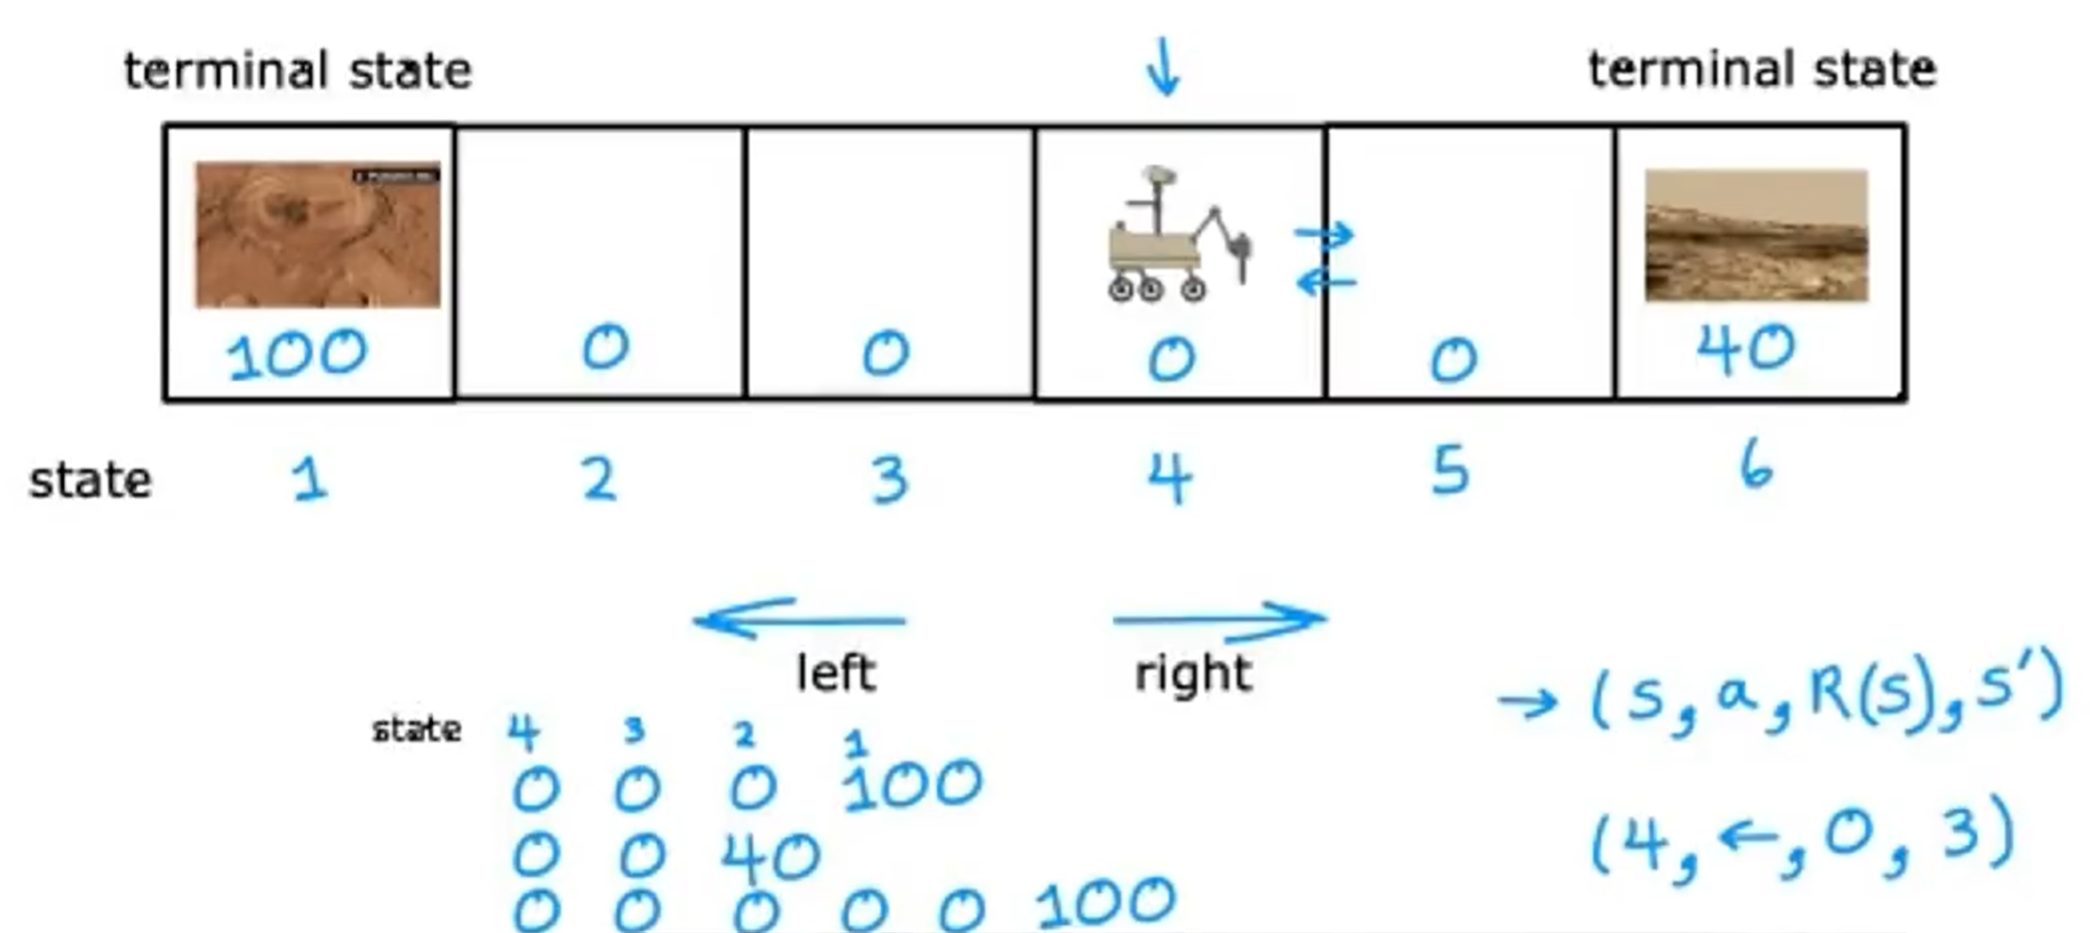 terminal state ↓ terminal state
100 0 0 → ← 0 0 40
state 1 2 3 4 5 6
← →
left right
→ (s, a, R(s), s')
state 4 3 2 1
0 0 0 100
(4, ←, 0, 3)
0 0 40
0 0 0 0 0 100